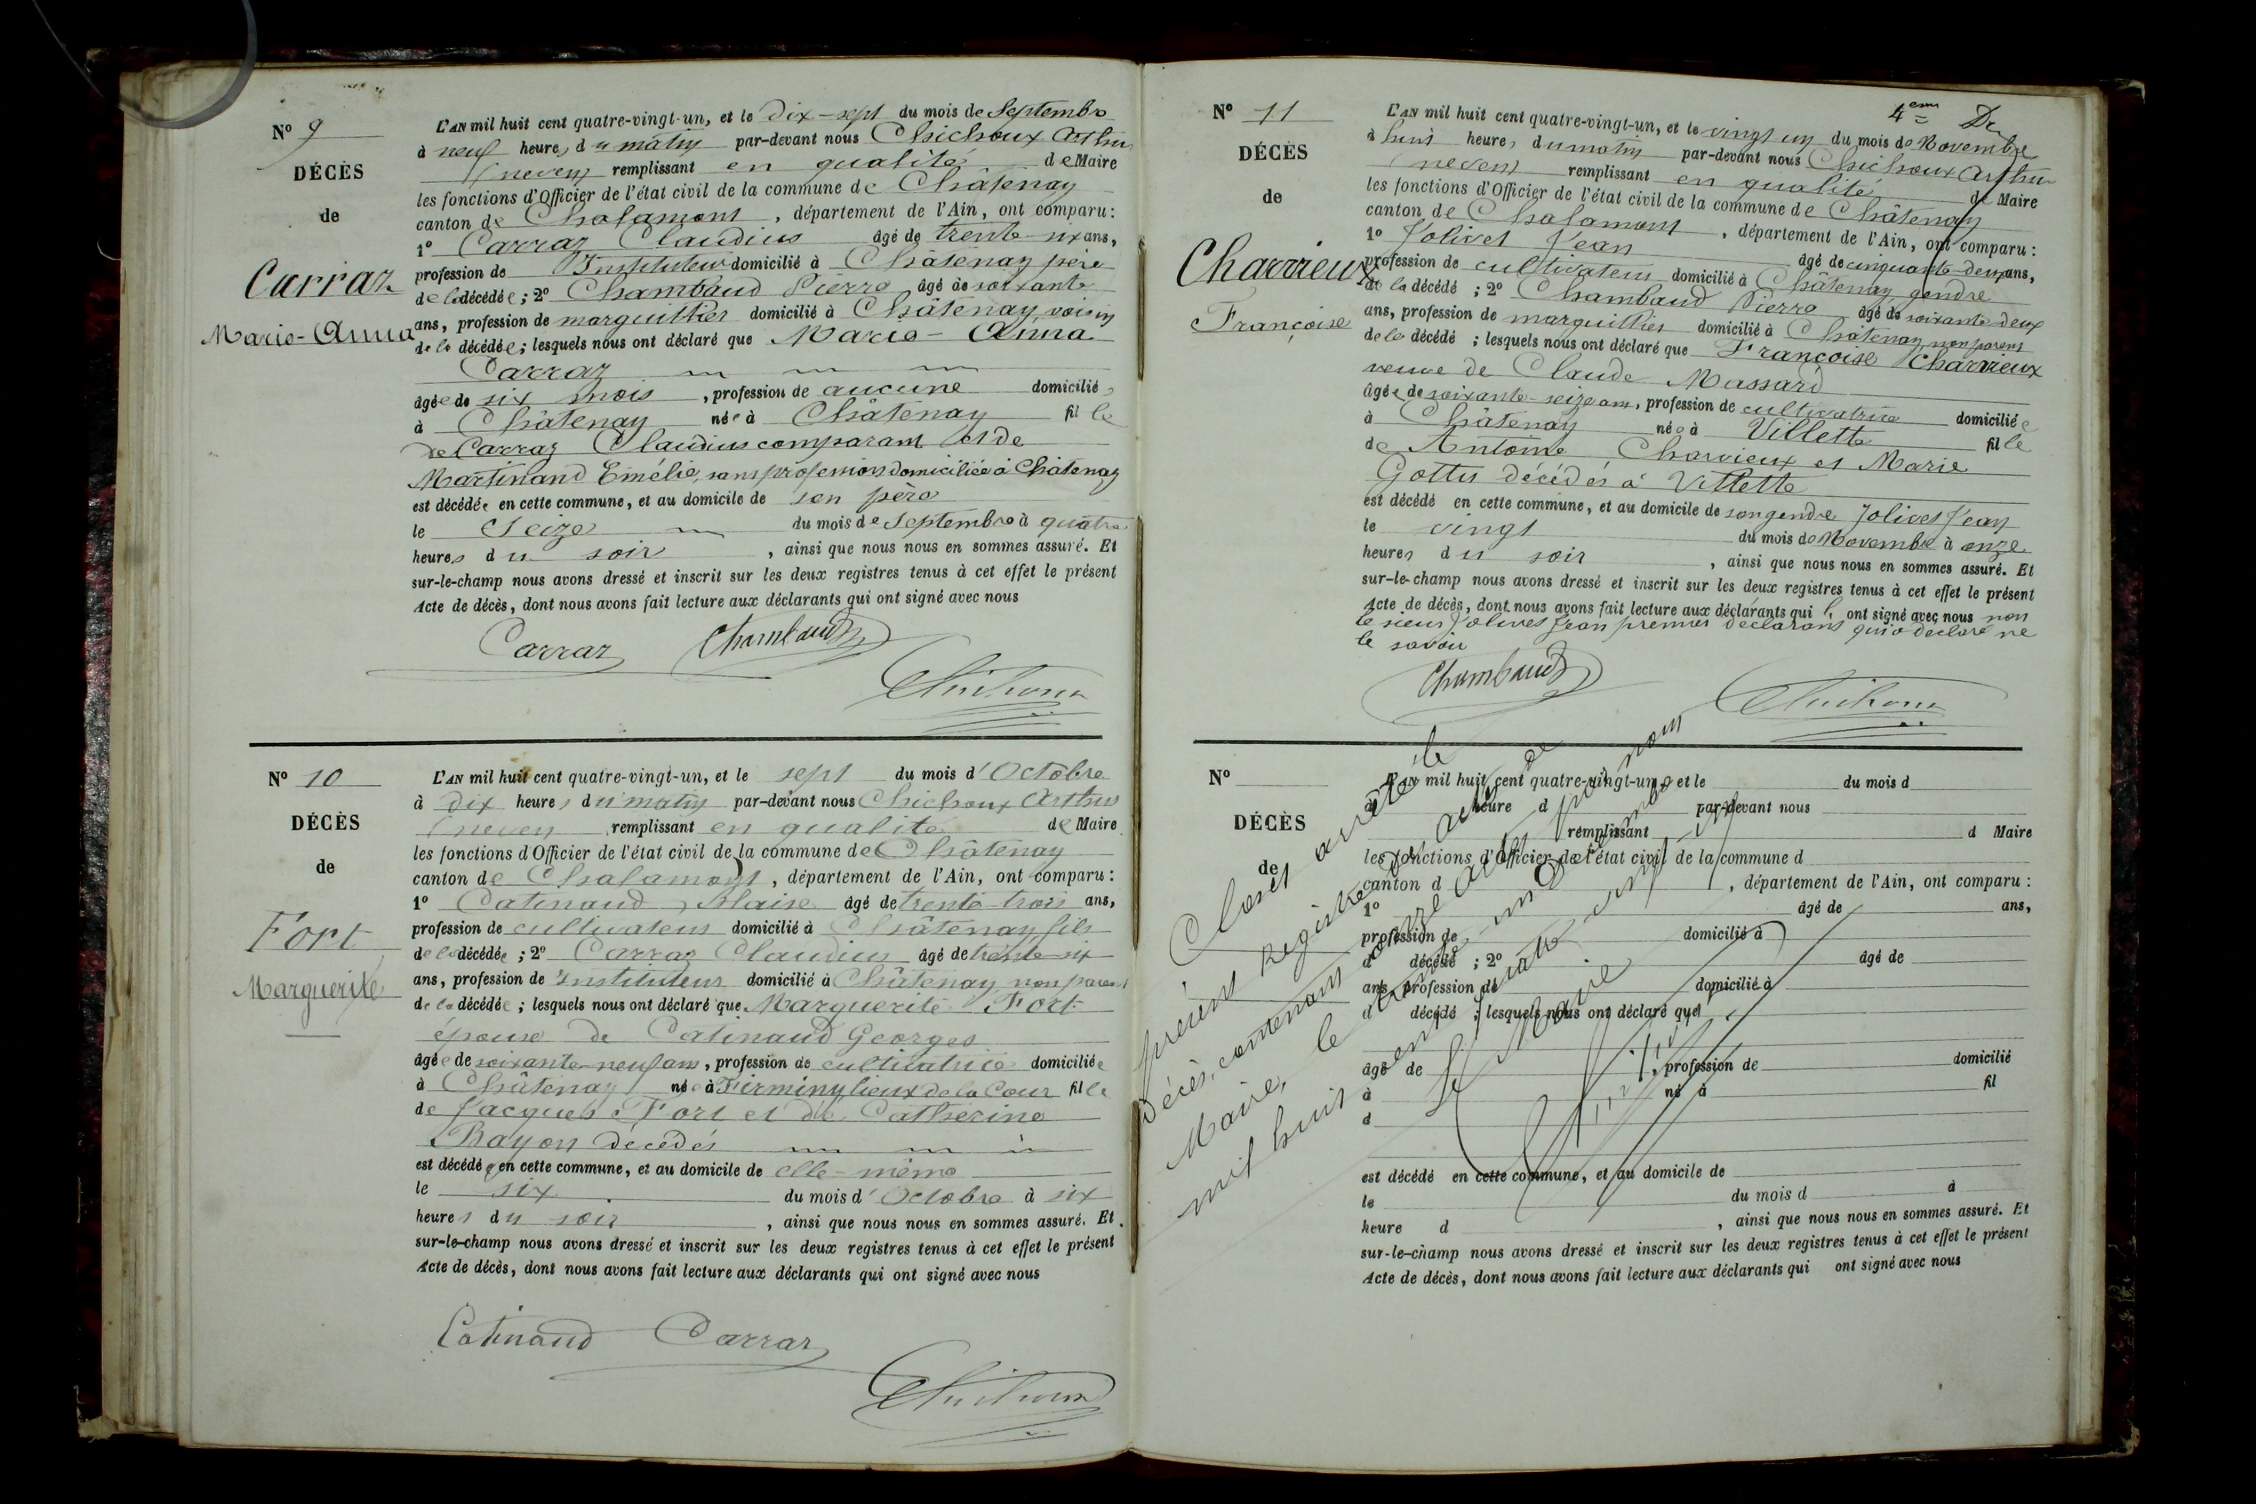 N° 9
DÉCÈS
de
Carraz
Marie-Anna
L'AN mil huit cent quatre-vingt-un, et le dix-sept du mois de Septembre
à neuf heures du matin par-devant nous Chichoux Arthur
(neveu) remplissant en qualité de Maire
les fonctions d'Officier de l'état civil de la commune de Châtenay
canton de Chalamont, département de l'Ain, ont comparu :
1° Carraz Claudius âgé de trente-six ans,
profession de Instituteur domicilié à Châtenay père
de la décédée ; 2° Chambaud Pierre âgé de soixante
ans, profession de marguillier domicilié à Châtenay, voisin
de la décédée ; lesquels nous ont déclaré que Marie-Anna
Carraz
âgée de six mois, profession de aucune domiciliée
à Châtenay née à Châtenay fille
de Carraz Claudius comparant et de
Martinand Emélie, sans profession domiciliée à Châtenay
est décédée en cette commune, et au domicile de son père
le Seize du mois de Septembre à quatre
heures du soir, ainsi que nous nous en sommes assuré. Et
sur-le-champ nous avons dressé et inscrit sur les deux registres tenus à cet effet le présent
Acte de décès, dont nous avons fait lecture aux déclarants qui ont signé avec nous
Carraz Chambaud
Chichoux
N° 10
DÉCÈS
de
Fort
Marguerite
L'AN mil huit cent quatre-vingt-un, et le sept du mois d'Octobre
à dix heures du matin par-devant nous Chichoux Arthur
(neveu) remplissant en qualité de Maire
les fonctions d'Officier de l'état civil de la commune de Châtenay
canton de Chalamont, département de l'Ain, ont comparu :
1° Catinaud Blaise âgé de trente-trois ans,
profession de cultivateur domicilié à Châtenay fils
de la décédée ; 2° Carraz Claudius âgé de trente-six
ans, profession de Instituteur domicilié à Châtenay, non parent
de la décédée ; lesquels nous ont déclaré que Marguerite Fort
épouse de Catinaud Georges
âgée de soixante-neuf ans, profession de cultivatrice domiciliée
à Châtenay née à Firminy lieux de la Cour fille
de Jacques Fort et de Catherine
Bayon décédés
est décédée en cette commune, et au domicile de elle-même
le six du mois d'Octobre à six
heures du soir, ainsi que nous nous en sommes assuré. Et
sur-le-champ nous avons dressé et inscrit sur les deux registres tenus à cet effet le présent
Acte de décès, dont nous avons fait lecture aux déclarants qui ont signé avec nous
Catinaud Carraz
Chichoux
4eme
N° 11
DÉCÈS
de
Charrieux
Françoise
L'AN mil huit cent quatre-vingt-un, et le vingt un du mois de Novembre
à huit heures du matin par-devant nous Chichoux Arthur
(neveu) remplissant en qualité de Maire
les fonctions d'Officier de l'état civil de la commune de Châtenay
canton de Chalamont, département de l'Ain, ont comparu :
1° Jolivet Jean âgé de cinquante-deux ans,
profession de cultivateur domicilié à Châtenay gendre
de la décédé ; 2° Chambaud Pierre âgé de soixante-deux
ans, profession de marguillier domicilié à Châtenay, non parent
de la décédé ; lesquels nous ont déclaré que Françoise Charrieux
veuve de Claude Massard
âgée de soixante-seize ans, profession de cultivatrice domiciliée
à Châtenay née à Villette fille
de Antoine Charvieux et Marie
Gottu décédés à Villette
est décédé en cette commune, et au domicile de son gendre Jolivet Jean
le vingt du mois de Novembre à onze
heures du soir, ainsi que nous nous en sommes assuré. Et
sur-le-champ nous avons dressé et inscrit sur les deux registres tenus à cet effet le présent
Acte de décès, dont nous avons fait lecture aux déclarants qui ont signé avec nous non
le sieur Jolivet Jean premier déclarant qui a déclaré ne
le savoir
Chambaud
Chichoux
N°
DÉCÈS
de
L'AN mil huit cent quatre-vingt-un, et le du mois d
à heure d par-devant nous
remplissant d Maire
les fonctions d'Officier de l'état civil de la commune d
canton d, département de l'Ain, ont comparu :
1° âgé de ans,
profession de domicilié à
d décédé ; 2° âgé de
ans, profession de domicilié à
d décédé ; lesquels nous ont déclaré que
âgé de, profession de domicilié
à né à fil
d
est décédé en cette commune, et au domicile de
le du mois d à
heure d, ainsi que nous nous en sommes assuré. Et
sur-le-champ nous avons dressé et inscrit sur les deux registres tenus à cet effet le présent
Acte de décès, dont nous avons fait lecture aux déclarants qui ont signé avec nous
Clos et arrêté le
présent Registre des actes de
Décès, contenant onze actes par nous
Maire, le trente-un Décembre
mil huit cent quatre-vingt-un
Le Maire